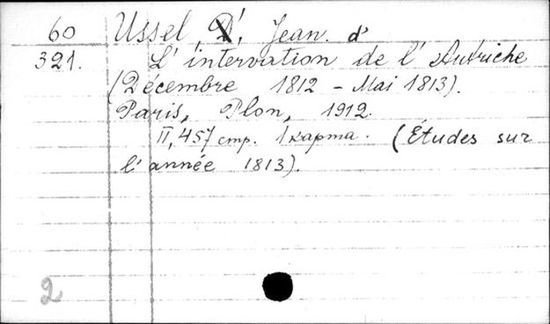 60 Ussel, Jean d'
321. L'intervation de l'Autriche
(Décembre 1812 - Mai 1813).
Paris, Plon, 1912.
II, 457 стр. 1 карта. (Études sur
l'année 1813).
2